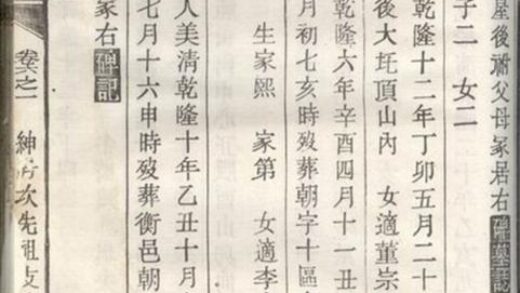 屋後祔父母冢居右碑墓記
子二　女二
乾隆十二年丁卯五月二十
後大圫頂山內　女適董宗
乾隆六年辛酉四月十一丑
月初七亥時歿葬朝字十區
生家熙　家第　女適李
人美清乾隆十年乙丑十月
七月十六申時歿葬衡邑朝
冢右碑記
卷六之一　紳房次先祖支